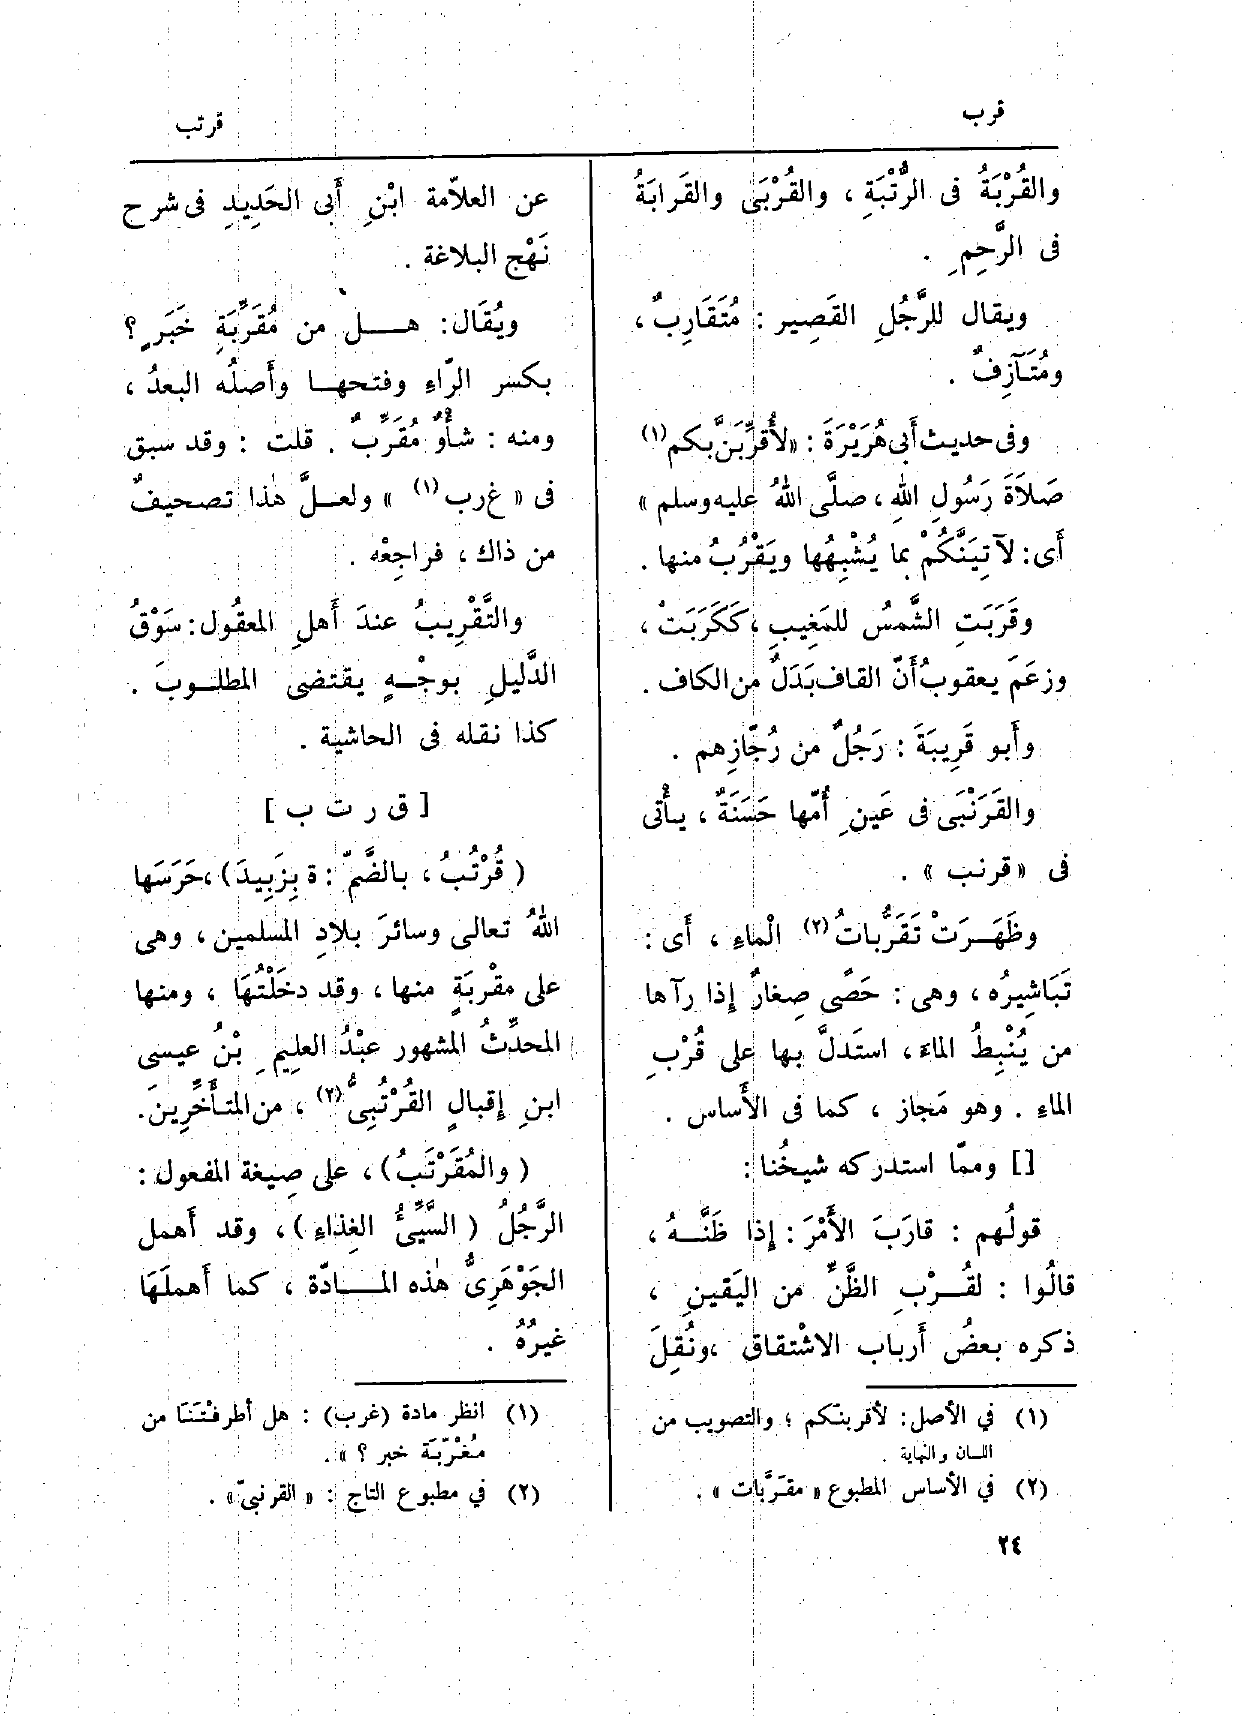 قرب
قرتب
والقُرْبَةُ فى الرُّتْبَةِ ، والقُرْبَى والقَرابَةُ
فى الرَّحِمِ .
ويقال للرَّجُلِ القَصِير : مُتَقَارِبٌ ،
ومُتَآزِفٌ .
وفى حديث أَبى هُرَيْرَةَ : «لأُقَرِّبَنَّ بكم (١)
صَلاَةَ رَسُولِ اللهِ ، صلَّى اللهُ عليه وسلم »
أَى : لآتِيَنَّكُمْ بما يُشْبِهُها ويَقْرُبُ منها .
وقَرَبَتِ الشَّمسُ للمَغِيبِ ، ككَرَبَتْ ،
وزعَمَ يعقوبُ أَنّ القاف بَدَلٌ من الكاف .
وأَبو قَرِيبَةَ : رَجُلٌ من رُجّازِهم .
والقَرَنْبَى فى عَينِ أُمّها حَسَنَةٌ ، يأْتى
فى «قرنب » .
وظَهَــرَتْ تَقَرُّباتُ (٢) الْماءِ ، أَى :
تَبَاشِيرُه ، وهى : حَصًى صِغارٌ إِذا رآها
من يُنْبِطُ الماءَ ، استَدلَّ بها على قُرْبِ
الماءِ . وهو مَجاز ، كما فى الأَساس .
[] وممّا استدركه شيخُنا :
قولُهم : قارَبَ الأَمْرَ : إِذا ظَنَّــهُ ،
قالُوا : لقُــرْبِ الظَّنِّ من اليَقينِ ،
ذكره بعضُ أَرباب الاشْتقاق ، ونُقِلَ
(١) في الأصل : لأقربنّكم ؛ والتصويب من
اللسان والنهاية .
(٢) في الأساس المطبوع « مقرَّبات » .
٢٤
عن العلاّمة ابْنِ أَبى الحَدِيدِ فى شرح
نَهْج البلاغة .
ويُقَال : هــل من مُقَرِّبَةِ خَبَرٍ ؟
بكسر الرّاءِ وفتحهـا وأَصلُه البعدُ ،
ومنه : شأْوٌ مُقَرِّبٌ . قلت : وقد سبق
فى « غ رب (١) » ولعـلَّ هٰذا تصحيفٌ
من ذاك ، فراجِعْه .
والتَّقْرِيبُ عندَ أَهلِ المعقُول : سَوْقُ
الدَّليلِ بوجْـهٍ يقتضى المطلـوبَ .
كذا نقله فى الحاشية .
[ ق ر ت ب ]
( قُرْتُبُ ، بالضّمّ : ة بِزَبِيدَ) ، حَرَسَها
اللهُ تعالى وسائرَ بلادِ المسلمين ، وهى
على مقْربَةٍ منها ، وقد دخَلْتُهَا ، ومنها
المحدِّثُ المشهور عبْدُ العلِيمِ بْنُ عيسى
ابنِ إِقبالٍ القُرْتُبِىُّ (٢) ، من المتأَخِّرِينَ .
( والمُقَرْتَبُ) ، على صِيغة المفعول :
الرَّجُلُ ( السَّيِّئُ الغِذاءِ ) ، وقد أَهمل
الجَوْهَرِىُّ هٰذه المــادّة ، كما أَهملَهَا
غيرُهُ .
(١) انظر مادة (غرب) : هل أطرفْتَنَا من
مُغْرّبَة خبر ؟ » .
(٢) في مطبوع التاج : « القرنبيّ» .